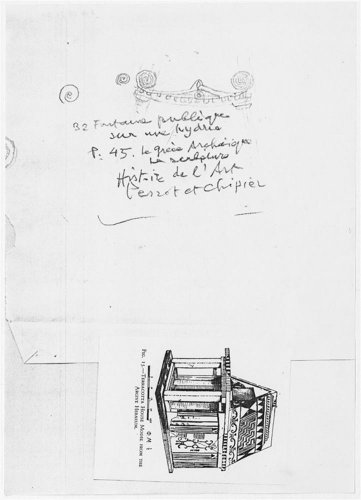 32 Fontaine publique
sur une hydrie
P. 45. la grèce Archaïque
La sculpture
Histoire de l'Art
Perrot et Chipiez
FIG. 15.—TERRACOTTA HOUSE MODEL FROM THE
ARGIVE HERAEUM.